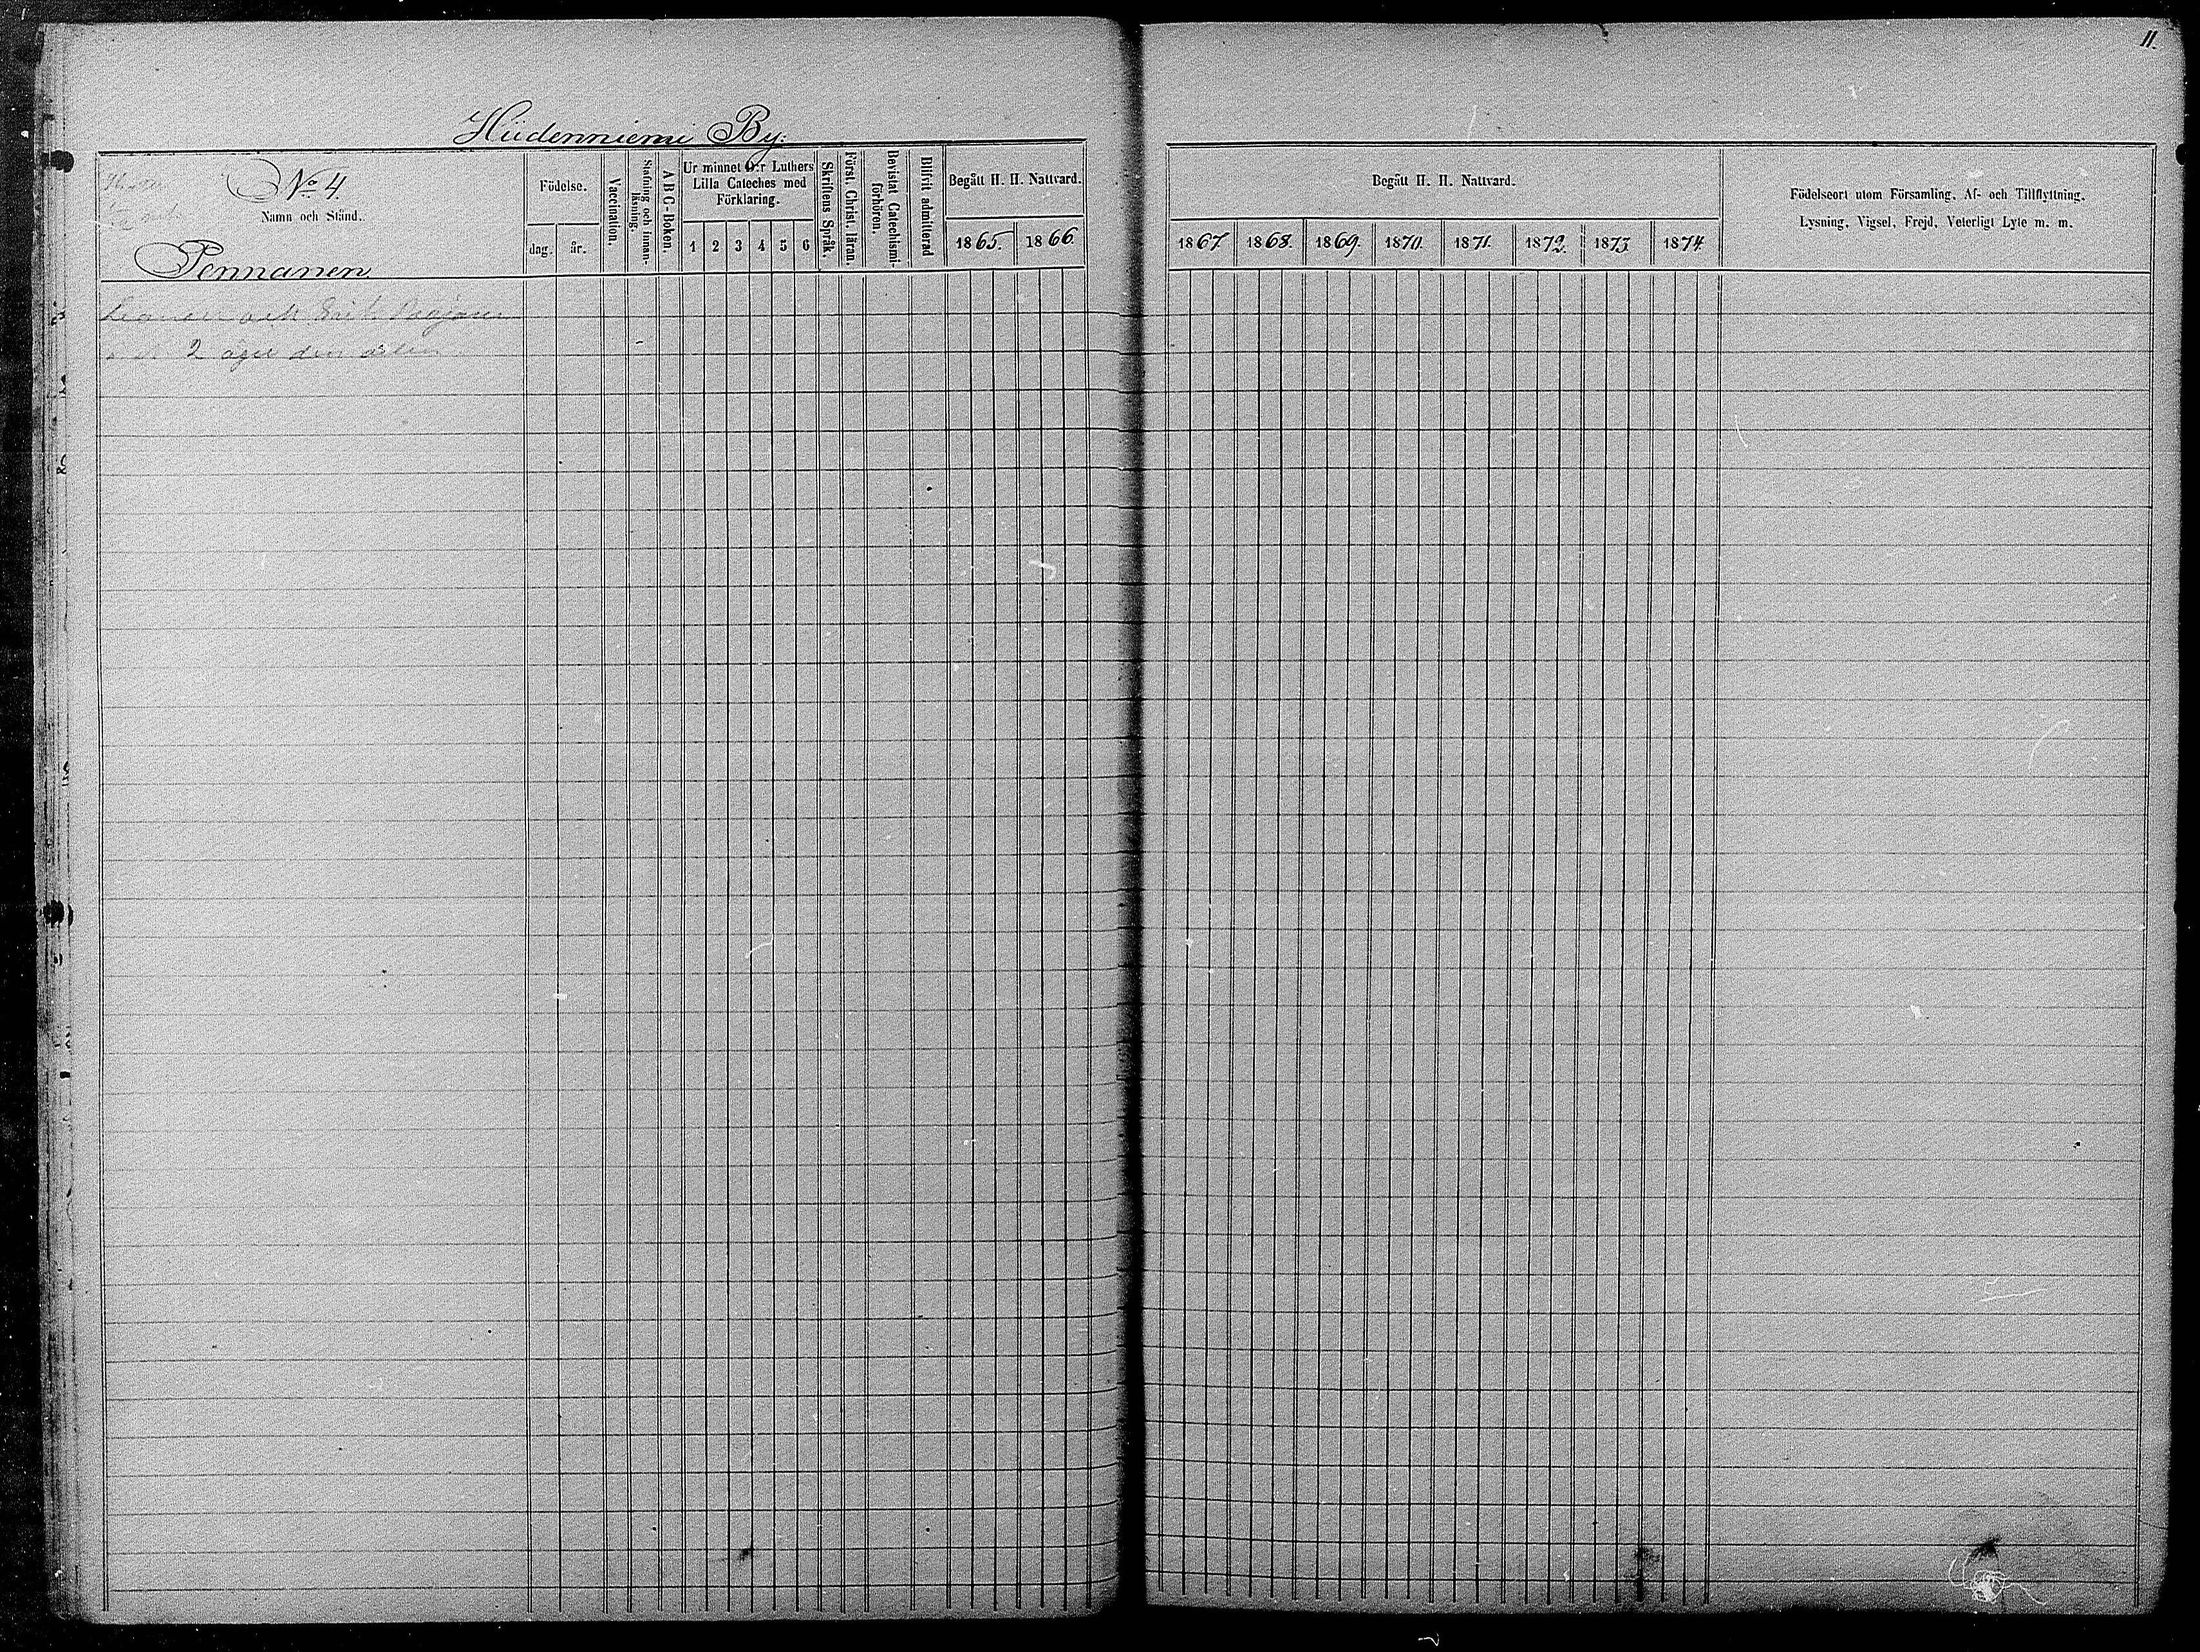 11.
Hiidenniemi By:
No 4.
Namn och Stånd.
Pennanen
Födelse.
dag. år.
Vaccination.
Stafning och Innan-
läsning.
A B C-Boken.
Ur minnet D:r Luthers
Lilla Cateches med
Förklaring.
1 2 3 4 5 6
Skriftens Språk.
Först. Christ. läran.
Bevistat Catechismi-
förhören.
Blifvit admitterad
Begått H. H. Nattvard.
1865. 1866.
Begått H. H. Nattvard.
1867 1868. 1869. 1870. 1871. 1872. 1873 1874.
Födelseort utom Församling, Af- och Tillflyttning,
Lysning, Vigsel, Frejd, Veterligt Lyte m. m.
och Erik
2 äger den